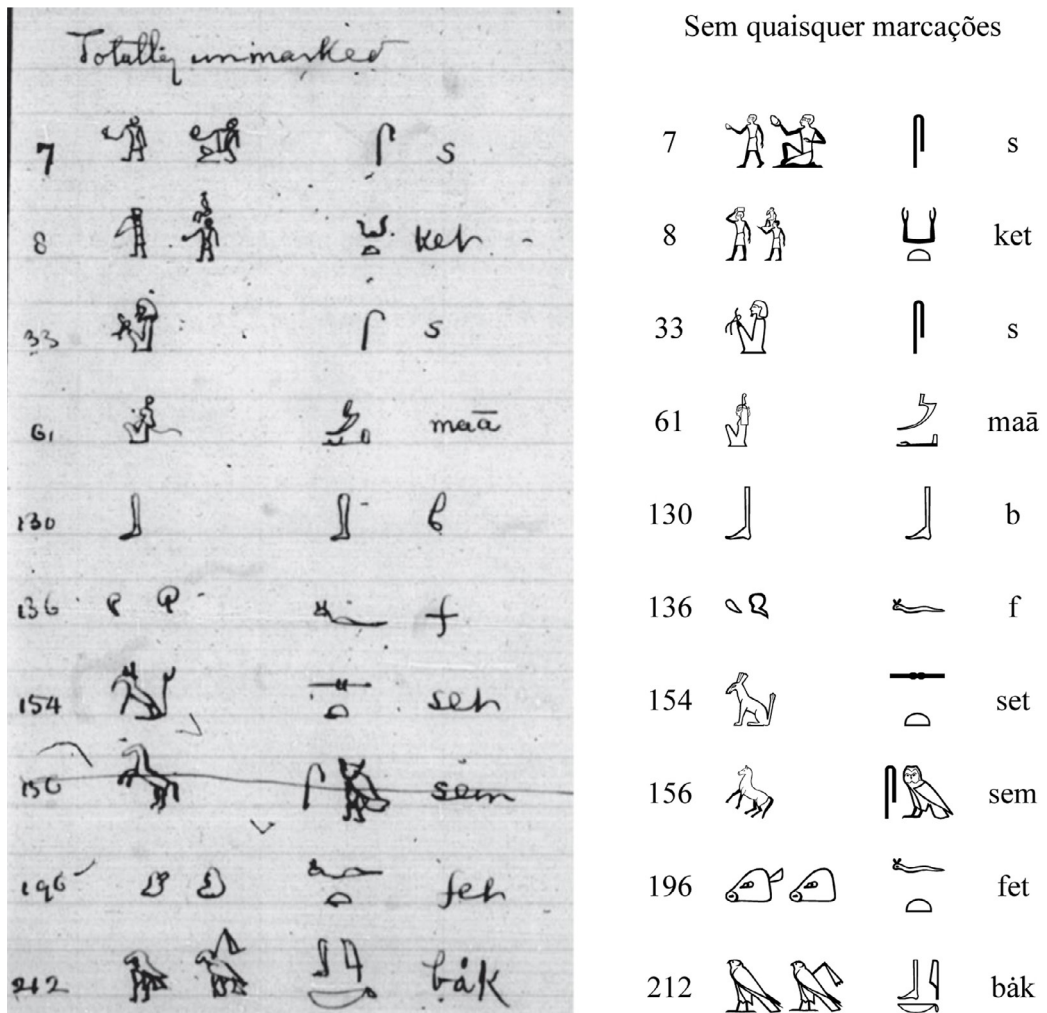 Totally unmarked
7 s
8 ket
33 s
61 maā
130 b
136 f
154 set
156 sem
196 fet
212 bȧk
Sem quaisquer marcações
7 s
8 ket
33 s
61 maā
130 b
136 f
154 set
156 sem
196 fet
212 bȧk